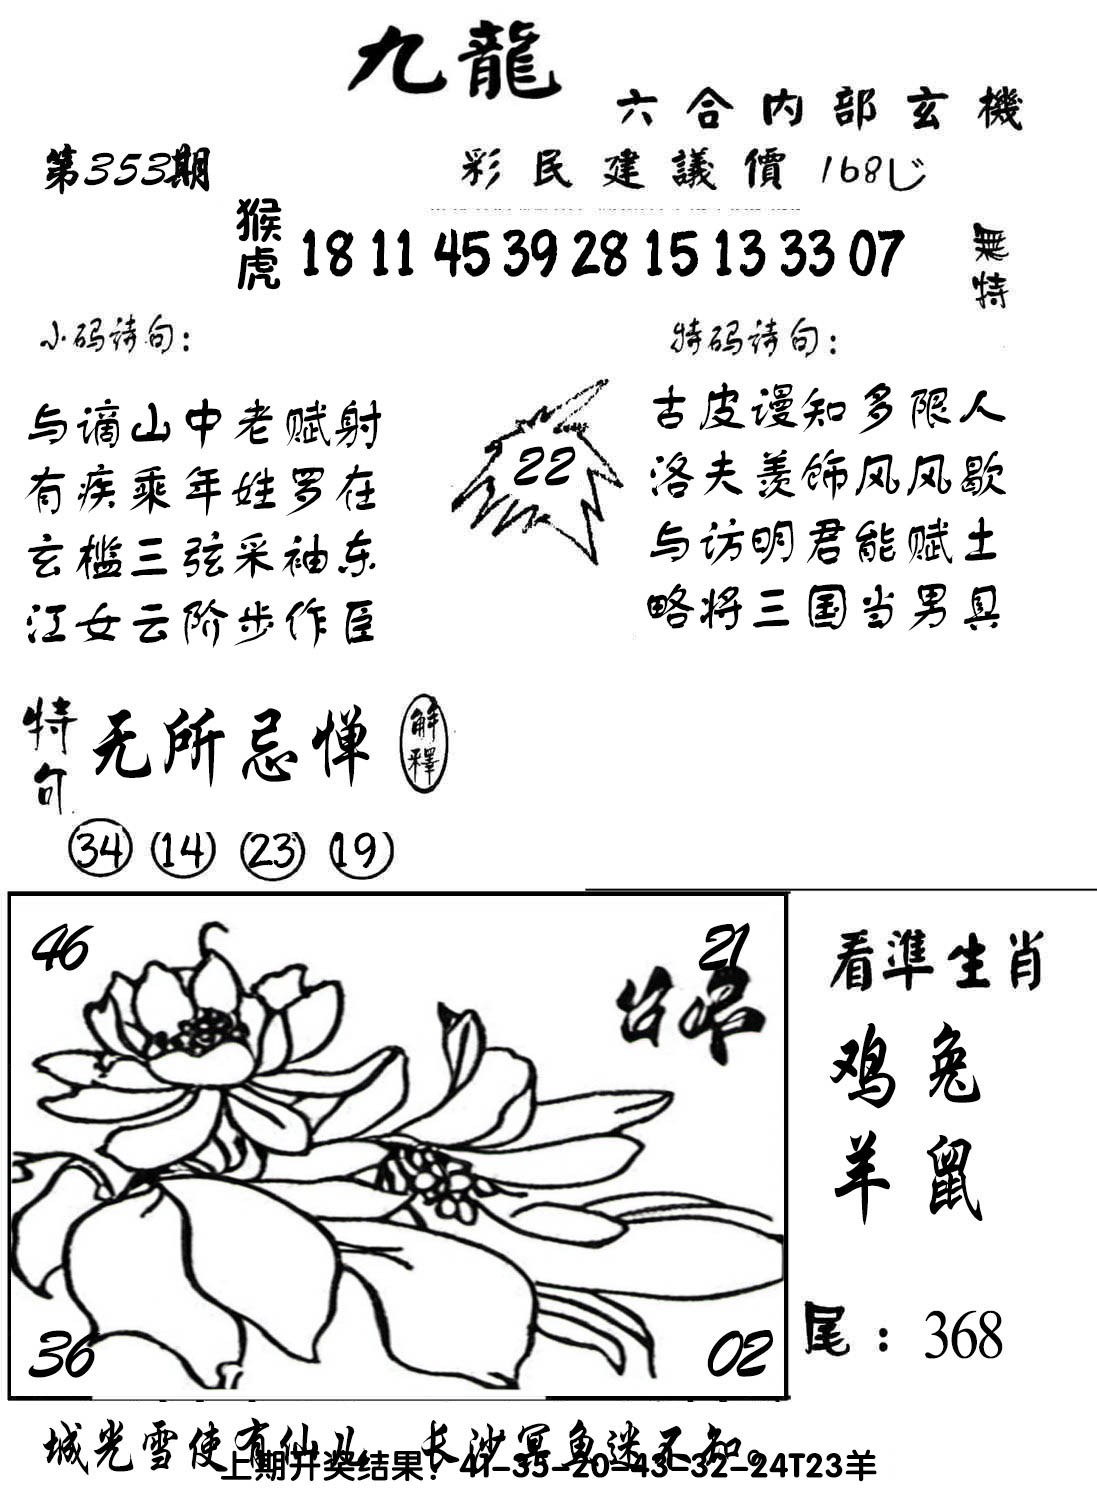 九龍
六合内部玄機
第353期
彩民建議價 168
猴虎 18 11 45 39 28 15 13 33 07
無特
小码诗句：
特码诗句：
与谪山中老赋射
有疾乘年姓罗在
玄槛三弦采袖东
江女云阶步作臣
22
古皮谩知多限人
洛夫羡饰风风歇
与访明君能赋土
略将三国当男具
特句 无所忌惮 解釋
34 14 23 19
46
21
36
02
看準生肖
鸡兔
羊鼠
尾：368
城光雪使有仙儿 长沙冥鱼迷不知。
上期开奖结果：41-35-20-43-32-24T23羊